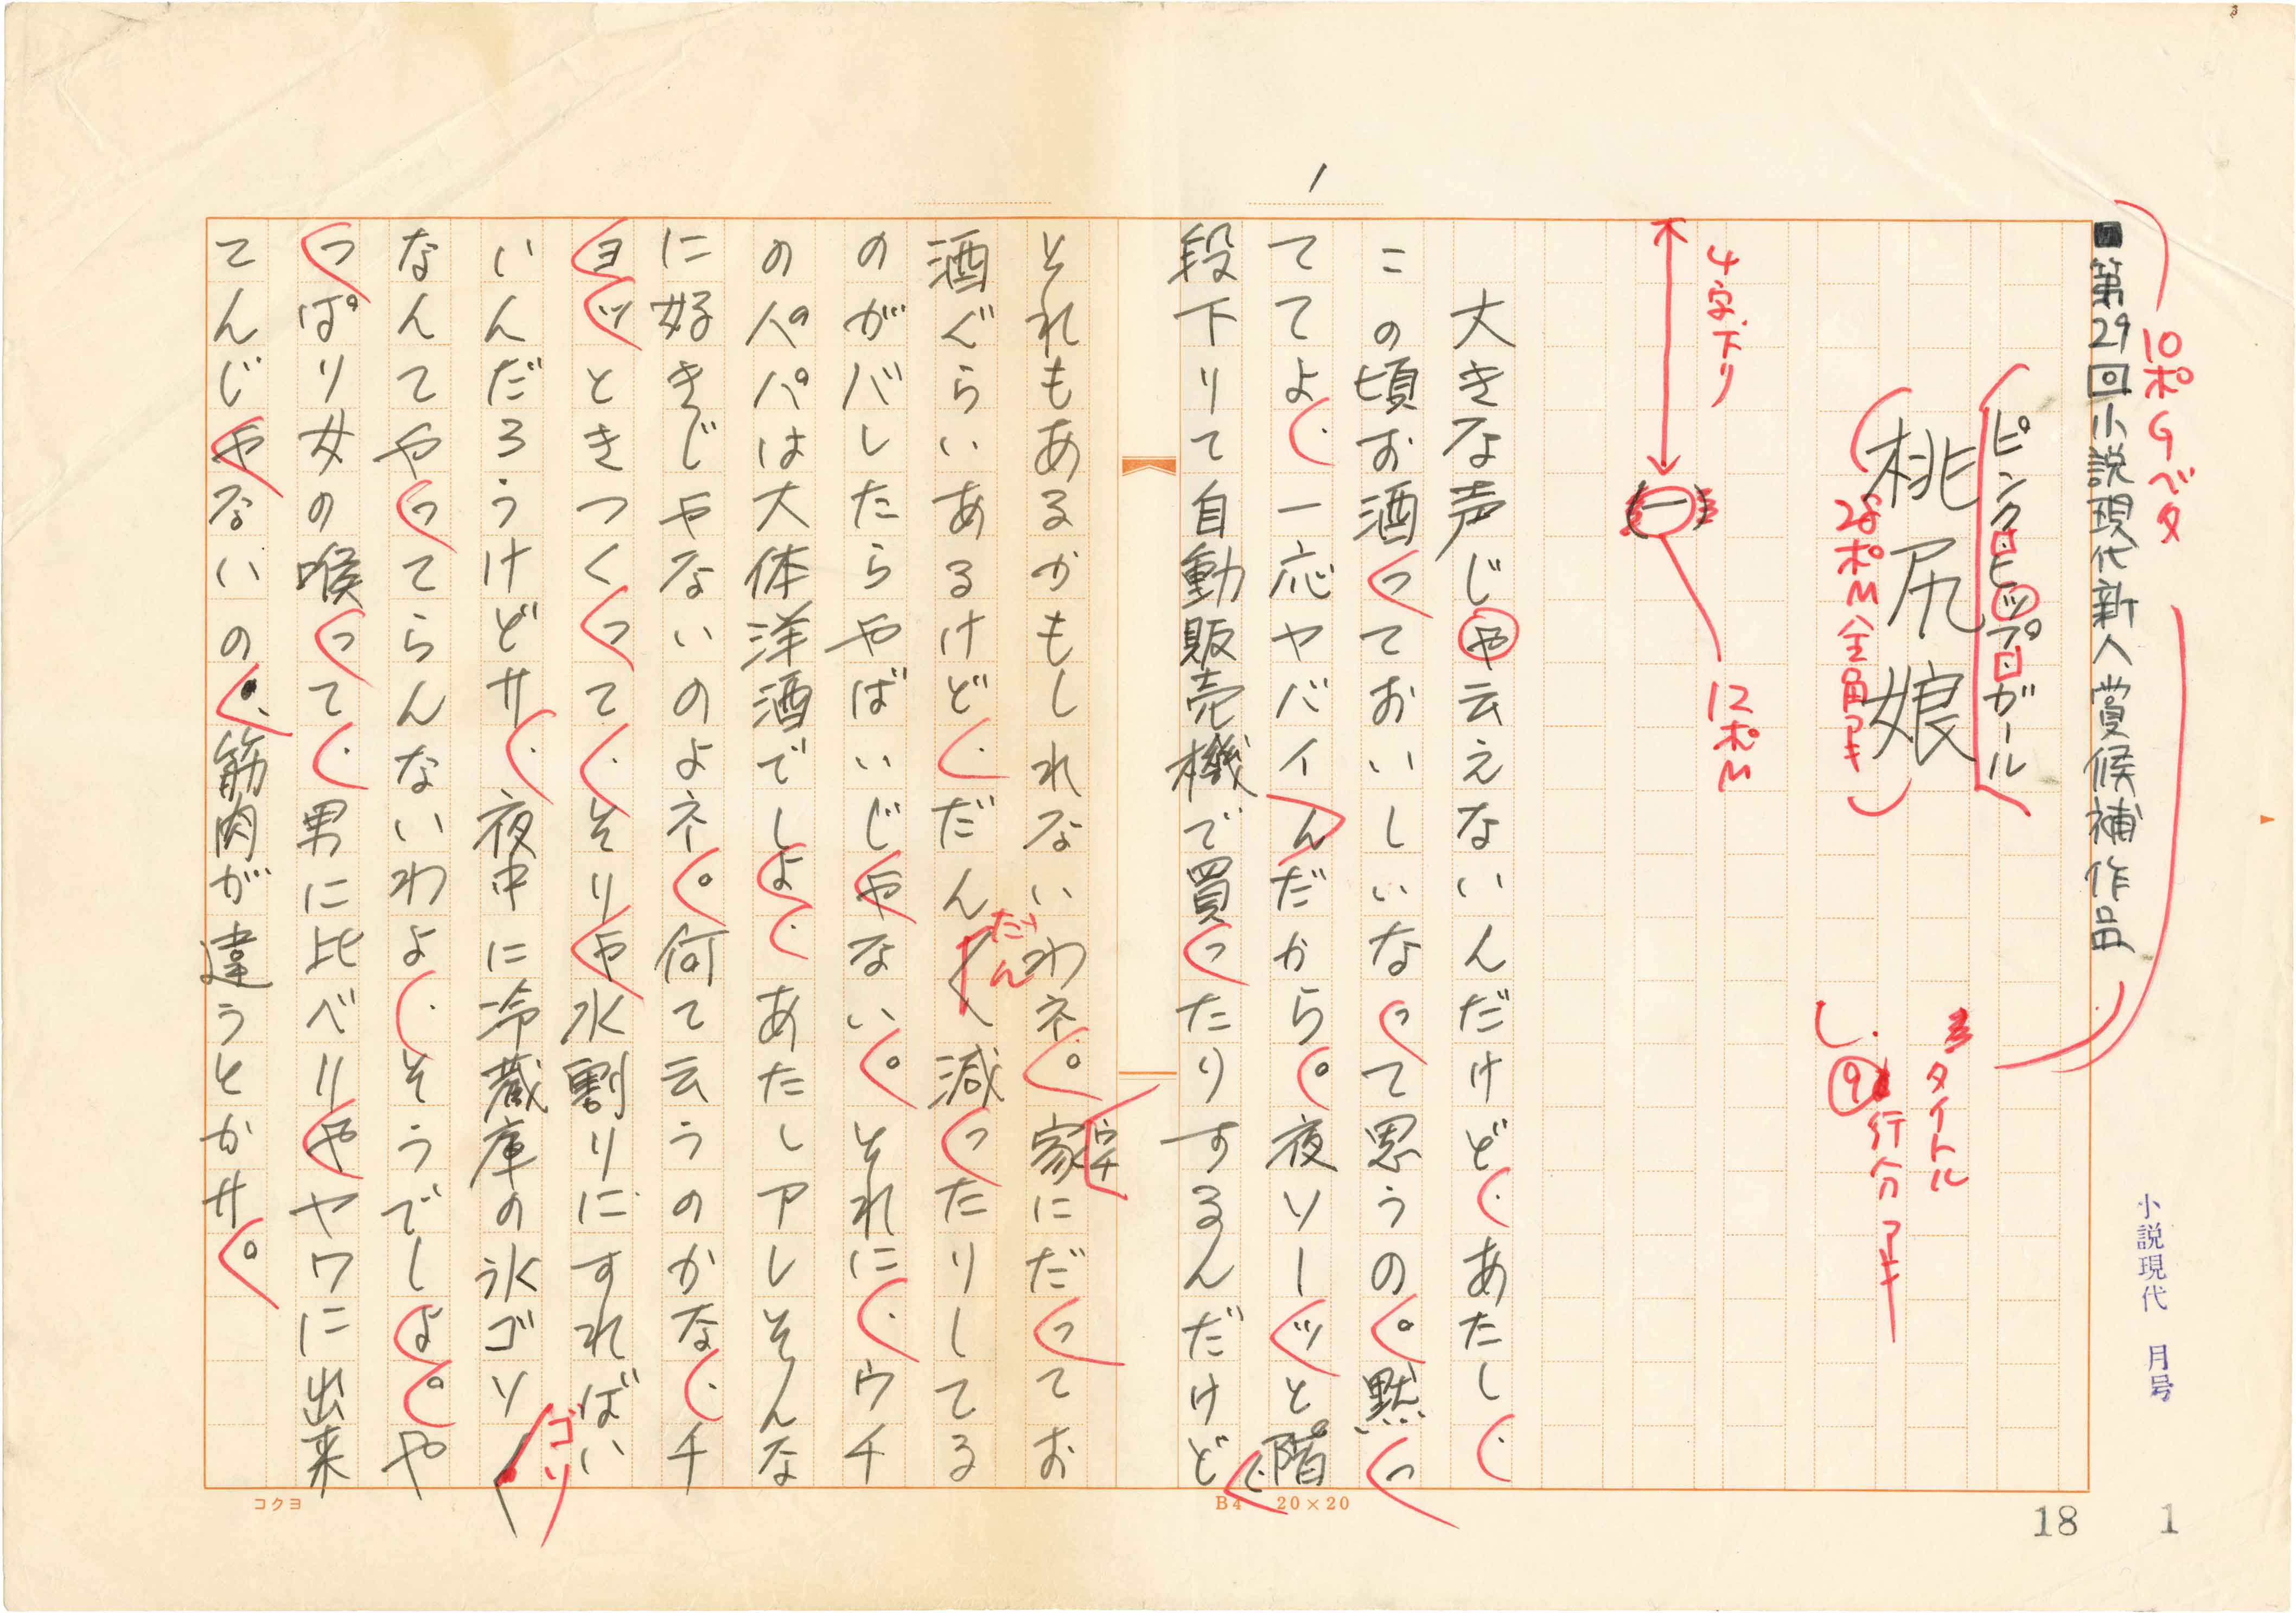 ■第29回小説現代新人賞候補作品
10ポGベタ
ピンク・ヒップ・ガール
桃尻娘
28ポM全角アキ
タイトル
⑨行分アキ
4字下リ
(一)
12ポM
1
大きな声じゃ云えないんだけど、あたし、
この頃お酒っておいしいなって思うの。黙っ
ててよ、一応ヤバイんだから。夜ソーッと階
段下りて自動販売機で買ったりするんだけど、
それもあるかもしれないわネ。家にだってお
ウチ
酒ぐらいあるけど、だん〱減ったりしてる
だん
のがバレたらやばいじゃない。それに、ウチ
のパパは大体洋酒でしょ、あたしアレそんな
に好きじゃないのよネ。何て云うのかな、チ
ョッときつくって、そりゃ水割りにすればい
いんだろうけどサ、夜中に冷蔵庫の氷ゴソ〱
ゴソ
なんてやってらんないわよ、そうでしょ。や
っぱり女の喉って、男に比べりゃヤワに出来
てんじゃないの、筋肉が違うとかサ。
コクヨ
B4 20×20
小説現代 月号
18
1